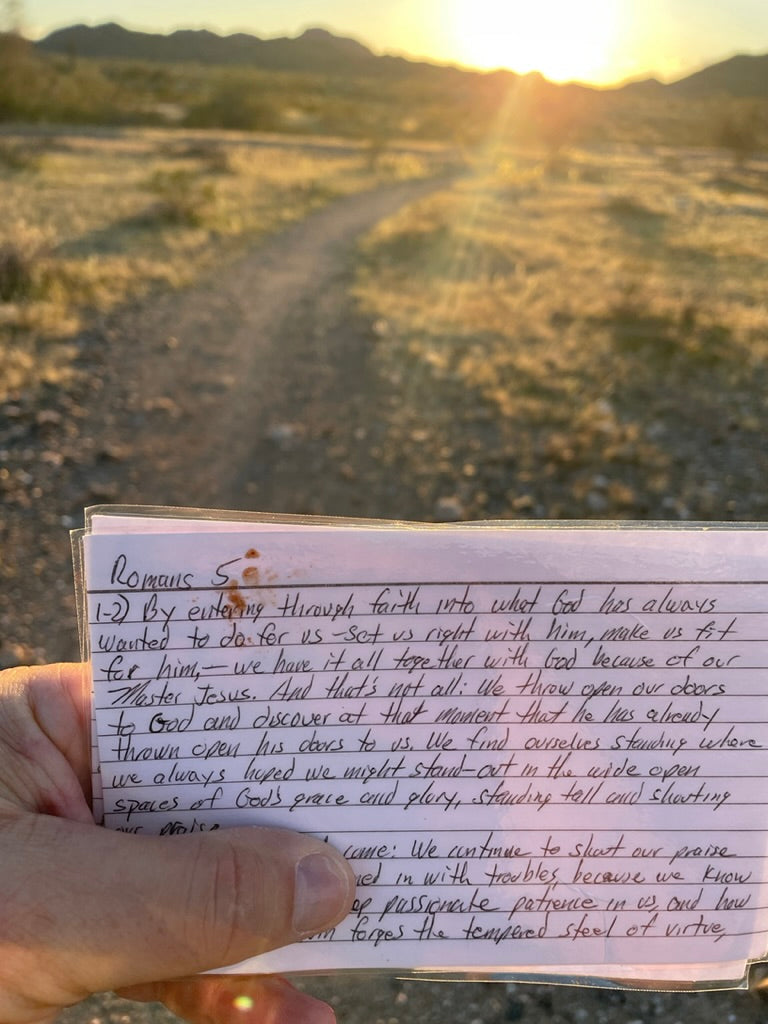 Romans 5
1-2) By entering through faith into what God has always
wanted to do for us - set us right with him, make us fit
for him, - we have it all together with God because of our
Master Jesus. And that's not all: We throw open our doors
to God and discover at that moment that he has already
thrown open his doors to us. We find ourselves standing where
we always hoped we might stand-out in the wide open
spaces of God's grace and glory, standing tall and shouting
our praise
come: We continue to shout our praise
in with troubles, because we know
passionate patience in us, and how
forges the tempered steel of virtue,